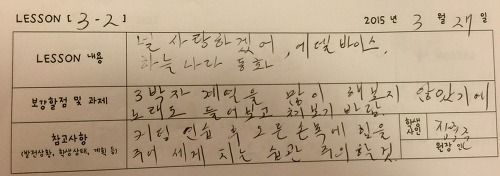 LESSON [ 3-2 ] 2015 년 3 월 27 일
LESSON 내용
널 사랑하겠어, 에델바이스,
하늘나라 동화
보강할점 및 과제
3박자 계열을 많이 해보지 않았기에
노래도 들어보고 쳐보기 바람.
참고사항
(발전상황, 학생상태, 계획 등)
커팅 연습 후 오른손목에 힘을
주어 세게 치는 습관 주의할것
학생
사인
원장 인